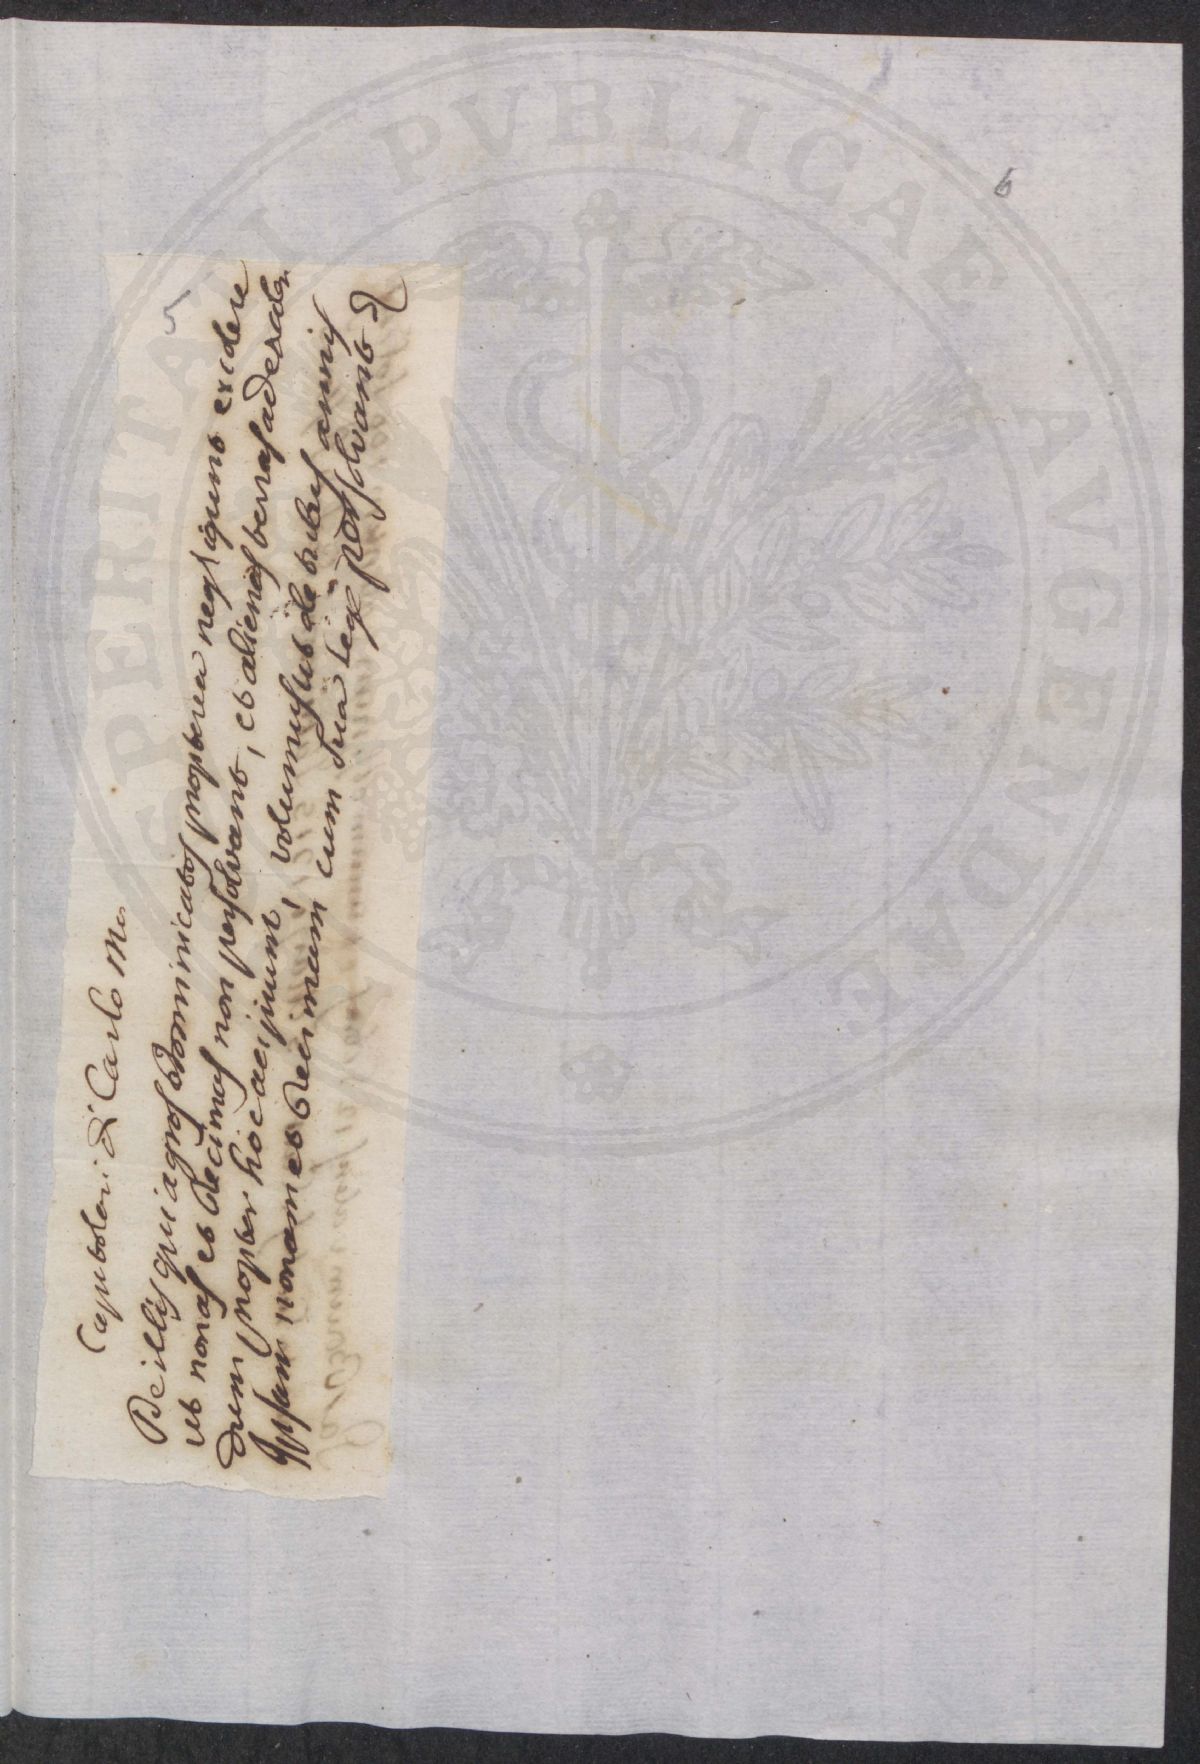 6
5
Capitolari di Carlo M.
De illis qui agros dominicatos propterea negligunt excolere
ut nonas et decimas non persolvant, et alienas terras ad excolen
dum propter hoc accipiunt, volumus ut de tribus annis
ipsam nonam et decimam cum sua lege persolvant
PERITATI PVBLICAE AVGENDAE